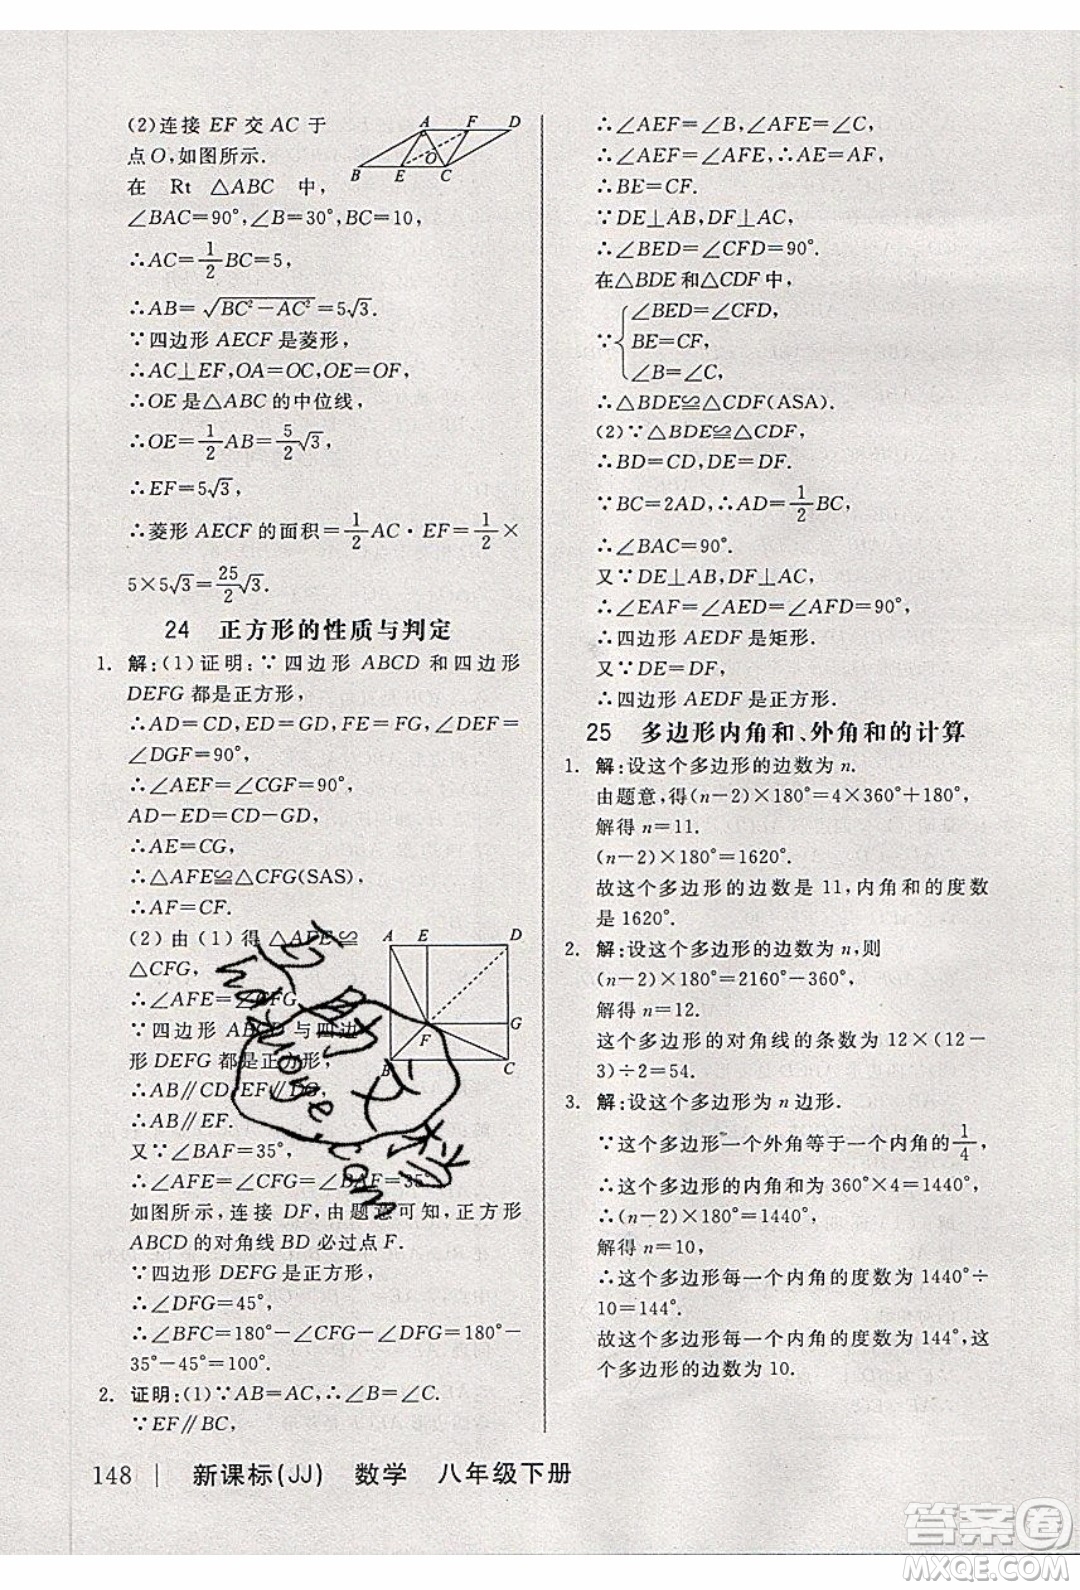 (2)连接 EF 交 AC 于
点O,如图所示.
在 Rt △ABC 中,
∠BAC=90°,∠B=30°,BC=10,
∴AC=1/2BC=5,
∴AB=√(BC²-AC²)=5√3.
∵四边形 AECF 是菱形,
∴AC⊥EF,OA=OC,OE=OF,
∴OE 是△ABC 的中位线,
∴OE=1/2AB=5/2√3,
∴EF=5√3,
∴菱形 AECF 的面积=1/2AC·EF=1/2×
5×5√3=25/2√3.
A F D
O
B E C
24 正方形的性质与判定
1. 解:(1)证明:∵四边形 ABCD 和四边形
DEFG 都是正方形,
∴AD=CD,ED=GD,FE=FG,∠DEF=
∠DGF=90°,
∴∠AEF=∠CGF=90°,
AD-ED=CD-GD,
∴AE=CG,
∴△AFE≌△CFG(SAS),
∴AF=CF.
(2)由(1)得 △AFE≌
△CFG,
∴∠AFE=∠CFG.
∵四边形 ABCD 与四边
形 DEFG 都是正方形,
∴AB∥CD,EF∥DG,
∴AB∥EF.
又∵∠BAF=35°,
∴∠AFE=∠CFG=∠BAF=35°.
如图所示,连接 DF,由题意可知,正方形
ABCD 的对角线 BD 必过点 F.
∵四边形 DEFG 是正方形,
∴∠DFG=45°,
∴∠BFC=180°-∠CFG-∠DFG=180°-
35°-45°=100°.
A E D
G
F
B C
2. 证明:(1)∵AB=AC,∴∠B=∠C.
∵EF∥BC,
∴∠AEF=∠B,∠AFE=∠C,
∴∠AEF=∠AFE,∴AE=AF,
∴BE=CF.
∵DE⊥AB,DF⊥AC,
∴∠BED=∠CFD=90°.
在△BDE 和△CDF 中,
∠BED=∠CFD,
∵ BE=CF,
∠B=∠C,
∴△BDE≌△CDF(ASA).
(2)∵△BDE≌△CDF,
∴BD=CD,DE=DF.
∵BC=2AD,∴AD=1/2BC,
∴∠BAC=90°.
又∵DE⊥AB,DF⊥AC,
∴∠EAF=∠AED=∠AFD=90°,
∴四边形 AEDF 是矩形.
又∵DE=DF,
∴四边形 AEDF 是正方形.
25 多边形内角和、外角和的计算
1. 解:设这个多边形的边数为 n.
由题意,得(n-2)×180°=4×360°+180°,
解得 n=11.
(n-2)×180°=1620°.
故这个多边形的边数是 11,内角和的度数
是 1620°.
2. 解:设这个多边形的边数为 n,则
(n-2)×180°=2160°-360°,
解得 n=12.
这个多边形的对角线的条数为 12×(12-
3)÷2=54.
3. 解:设这个多边形为 n 边形.
∵这个多边形一个外角等于一个内角的1/4,
∴这个多边形的内角和为 360°×4=1440°,
∴(n-2)×180°=1440°,
解得 n=10,
∴这个多边形每一个内角的度数为 1440°÷
10=144°.
故这个多边形每一个内角的度数为 144°,这
个多边形的边数为 10.
148 | 新课标(JJ) 数学 八年级下册
答案圈
MXQE.COM